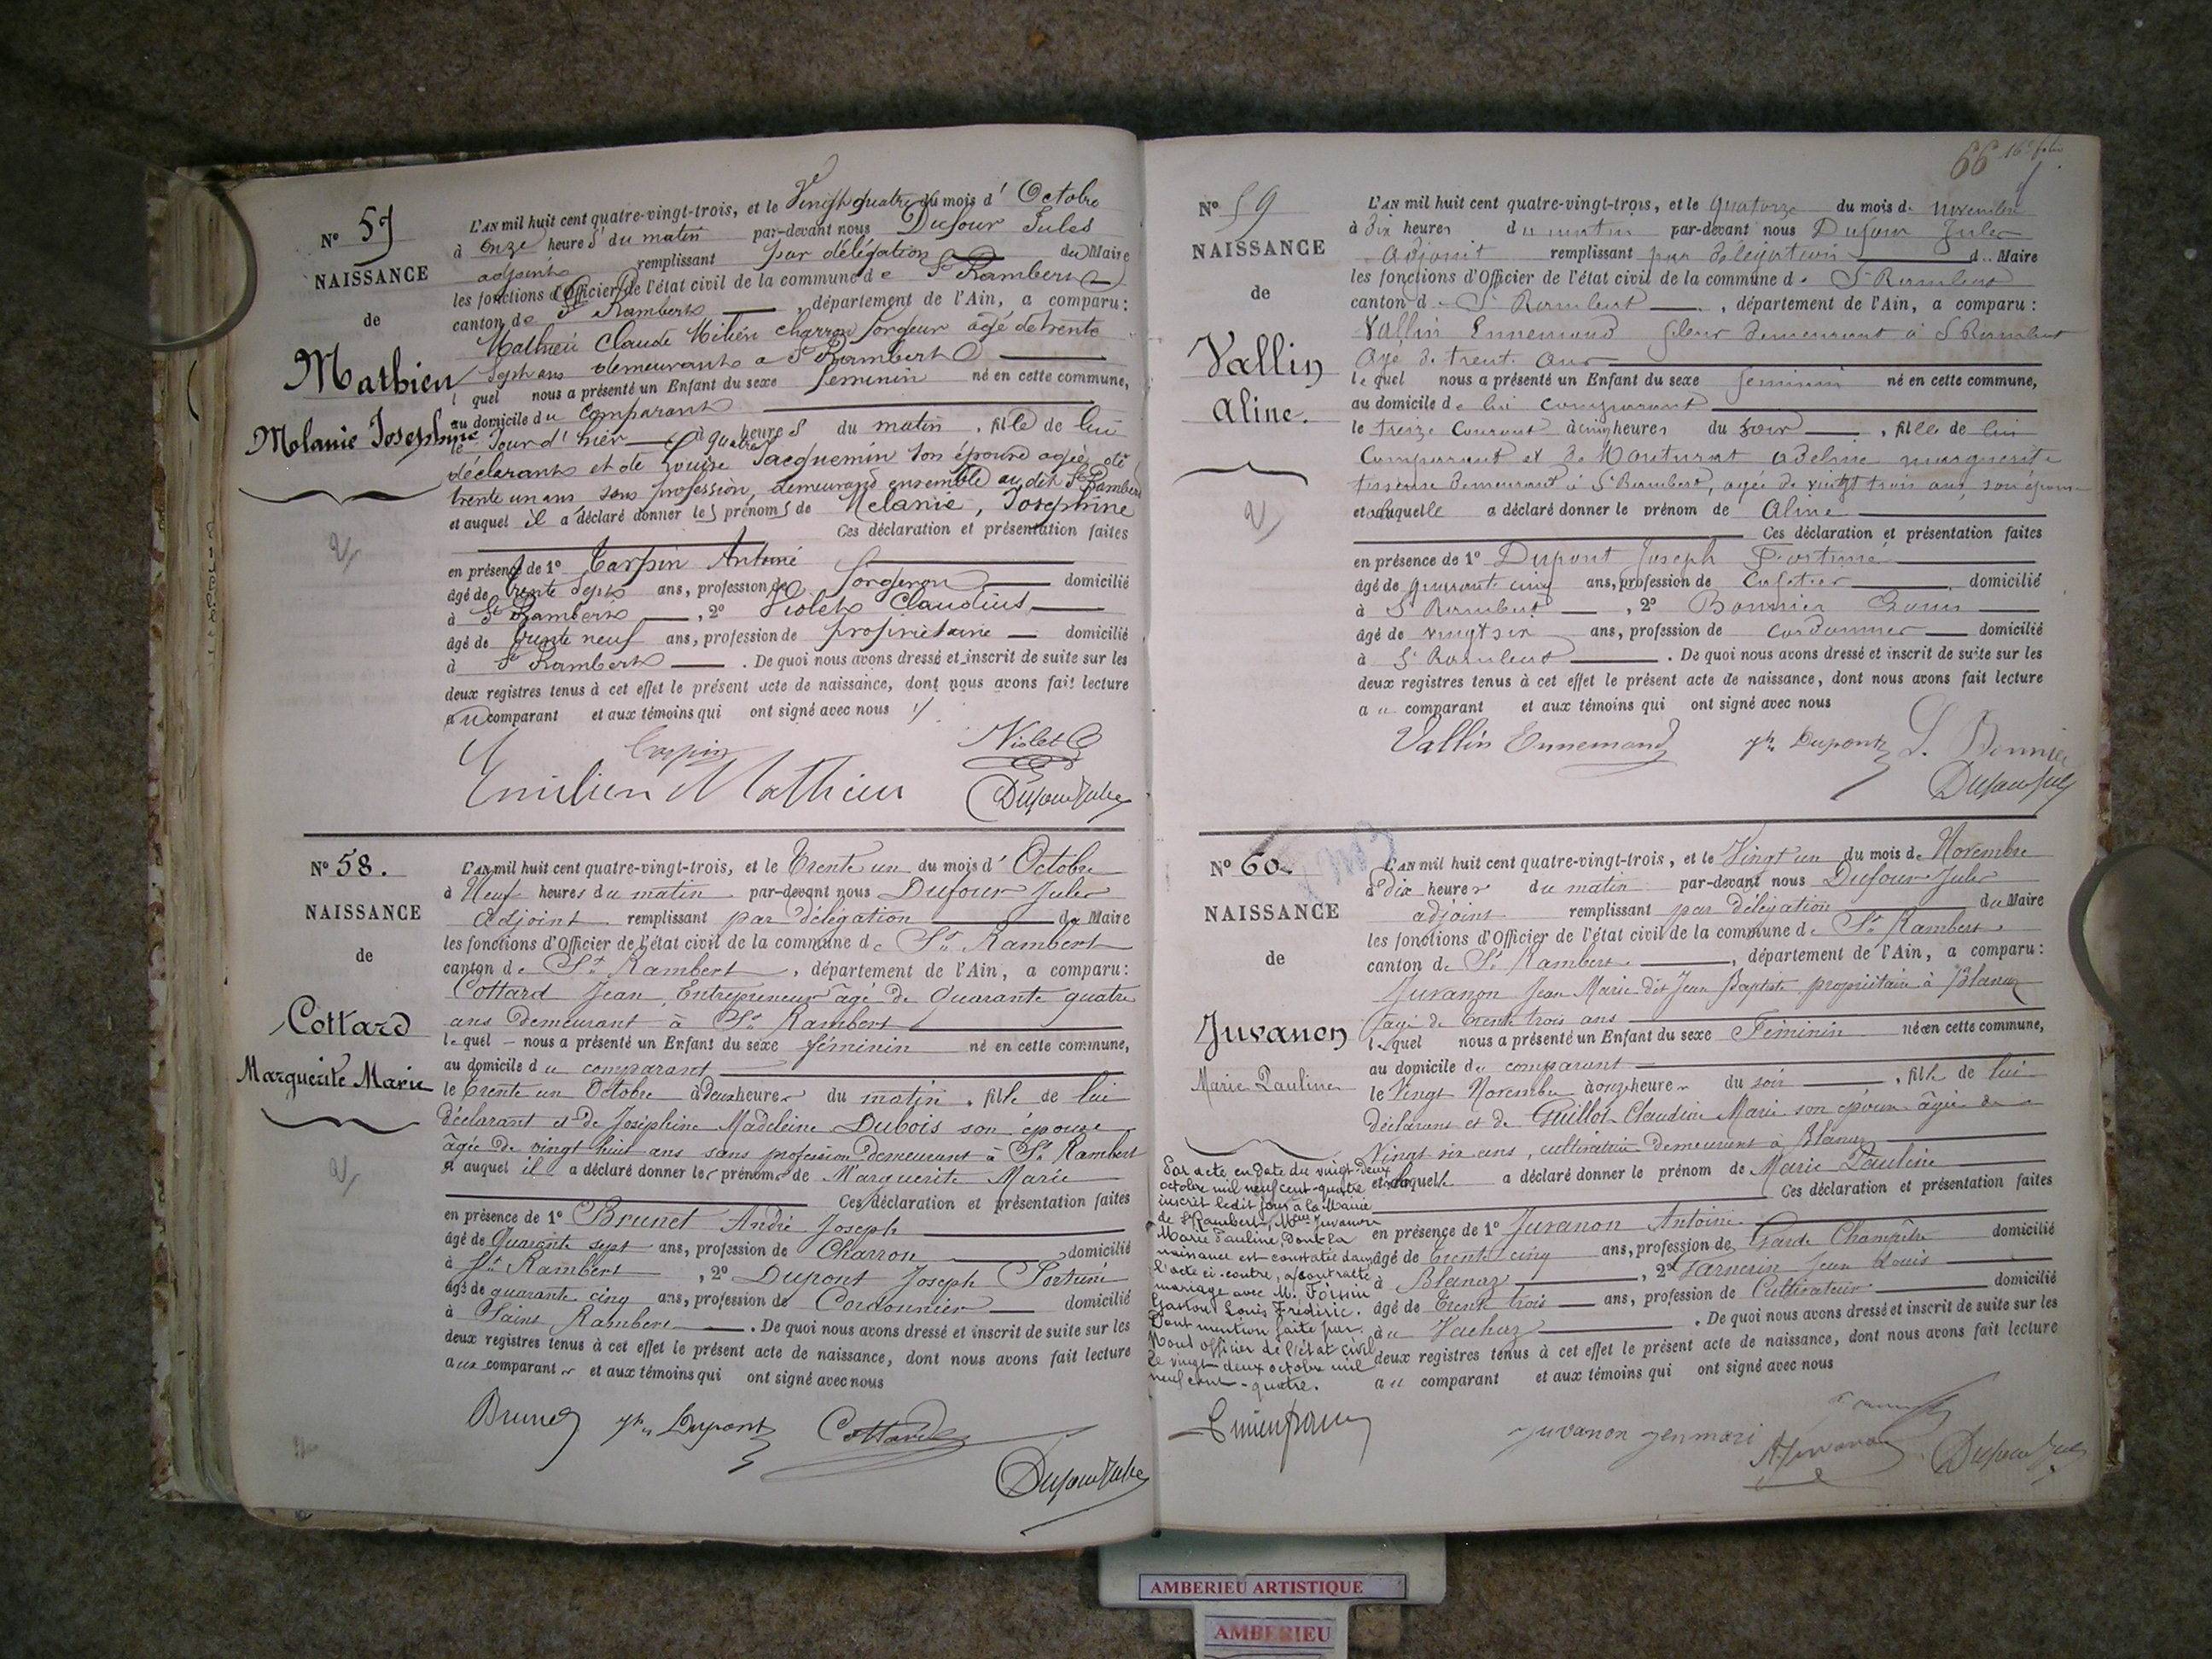 N° 57
NAISSANCE
de
Mathieu
Mélanie Josephine
L'AN mil huit cent quatre-vingt-trois, et le Vingt quatre du mois d' Octobre
à Onze heures du matin par-devant nous Dufour Jules
adjoint remplissant par délégation du Maire
les fonctions d'Officier de l'état civil de la commune de St Rambert
canton de St Rambert , département de l'Ain, a comparu:
Mathieu Claude charron forgeur âgé de trente
Sept ans demeurant a St Rambert
l quel nous a présenté un Enfant du sexe féminin né en cette commune,
au domicile du comparant
le Jour d'hier à quatre heures du matin , fille de lui
déclarant et de Louise Jacquemin son épouse agée de
trente un ans sans profession, demeurant ensemble au dit St Rambert
et auquel il a déclaré donner les prénoms de Mélanie, Josephine
Ces déclaration et présentation faites
en présence de 1° Tarpin Antoine
âgé de trente Sept ans, profession de forgeron domicilié
à St Rambert , 2° Violet Claudius
âgé de trente neuf ans, profession de propriètaire domicilié
à St Rambert . De quoi nous avons dressé et inscrit de suite sur les
deux registres tenus à cet effet le présent acte de naissance, dont nous avons fait lecture
au comparant et aux témoins qui ont signé avec nous
Tarpin Violet C
Emilien Mathieu Dufour Jules
N° 58.
NAISSANCE
de
Cottard
Marguerite Marie
L'AN mil huit cent quatre-vingt-trois, et le Trente un du mois d' Octobre
à Neuf heures du matin par-devant nous Dufour Jules
Adjoint remplissant par délégation du Maire
les fonctions d'Officier de l'état civil de la commune de St Rambert
canton de St Rambert , département de l'Ain, a comparu:
Cottard Jean, Entrepreneur âgé de Quarante quatre
ans demeurant à St Rambert
lequel nous a présenté un Enfant du sexe féminin né en cette commune,
au domicile du comparant
le trente un Octobre à deux heures du matin , fille de lui
déclarant et de Joséphine Madeleine Dubois son épouse
âgée de vingt huit ans sans profession demeurant à St Rambert
et auquel il a déclaré donner les prénoms de Marguerite Marie
Ces déclaration et présentation faites
en présence de 1° Brunet André Joseph
âgé de Quarante sept ans, profession de Charron domicilié
à St Rambert , 2° Dupont Joseph Fortuné
âgé de quarante cinq ans, profession de Cordonnier domicilié
à Saint Rambert . De quoi nous avons dressé et inscrit de suite sur les
deux registres tenus à cet effet le présent acte de naissance, dont nous avons fait lecture
aux comparants et aux témoins qui ont signé avec nous
Brunet Jh Dupont Cottard
Dufour Jules
66 16e folio
N° 59
NAISSANCE
de
Vallin
Aline.
L'AN mil huit cent quatre-vingt-trois, et le quatorze du mois de novembre
à dix heures du matin par-devant nous Dufour Jules
Adjoint remplissant par délégation d Maire
les fonctions d'Officier de l'état civil de la commune de St Rambert
canton de St Rambert , département de l'Ain, a comparu:
Vallin Ennemond fileur demeurant à St Rambert
âgé de trente ans
lequel nous a présenté un Enfant du sexe feminin né en cette commune,
au domicile de lui comparant
le treize Courant à cinq heures du soir , fille de lui
Comparant et de Adeline marguerite
tisseuse demeurant à St Rambert, agée de vingt trois ans, son épouse
et à laquelle a déclaré donner le prénom de Aline
Ces déclaration et présentation faites
en présence de 1° Dupont Joseph Fortuné
âgé de quarante cinq ans, profession de Cafetier domicilié
à St Rambert , 2° Bonnier Louis
âgé de vingt six ans, profession de cordonnier domicilié
à St Rambert . De quoi nous avons dressé et inscrit de suite sur les
deux registres tenus à cet effet le présent acte de naissance, dont nous avons fait lecture
au comparant et aux témoins qui ont signé avec nous
Vallin Ennemond Jh Dupont L. Bonnier
Dufour Jules
N° 60.
NAISSANCE
de
Juvanon
Marie Pauline
L'AN mil huit cent quatre-vingt-trois, et le Vingt un du mois de Novembre
à dix heures du matin par-devant nous Dufour Jules
adjoint remplissant par délégation du Maire
les fonctions d'Officier de l'état civil de la commune de St Rambert
canton de St Rambert , département de l'Ain, a comparu:
Juvanon Jean Marie dit Jean Baptiste propriétaire à Blanaz
âgé de trente trois ans
lequel nous a présenté un Enfant du sexe Féminin né en cette commune,
au domicile du comparant
le Vingt Novembre à onze heures du soir , fille de lui
déclarant et de Guillot Claudine Marie son épouse âgée de
Vingt six ans, cultivatrice demeurant à Blanaz
et à laquelle a déclaré donner le prénom de Marie Pauline
Ces déclaration et présentation faites
en présence de 1° Juvanon Antoine
âgé de trente cinq ans, profession de Garde Champêtre domicilié
à Blanaz , 2° Jean Louis
âgé de trente trois ans, profession de Cultivateur domicilié
à Vachaz . De quoi nous avons dressé et inscrit de suite sur les
deux registres tenus à cet effet le présent acte de naissance, dont nous avons fait lecture
au comparant et aux témoins qui ont signé avec nous
Par acte en date du vingt-deux
octobre mil neuf cent-quatre
inscrit ledit jour à la Mairie
de St Rambert, Melle Juvanon
Marie Pauline, dont la
naissance est constatée dans
l'acte ci-contre, a contracté
mariage avec M.
Gaston Louis Frédéric.
Dont mention faite par
Nous officier de l'état civil
le vingt-deux octobre mil
neuf cent-quatre.
Juvanon jenmari A Juvanon Dufour Jules
AMBERIEU ARTISTIQUE
AMBERIEU